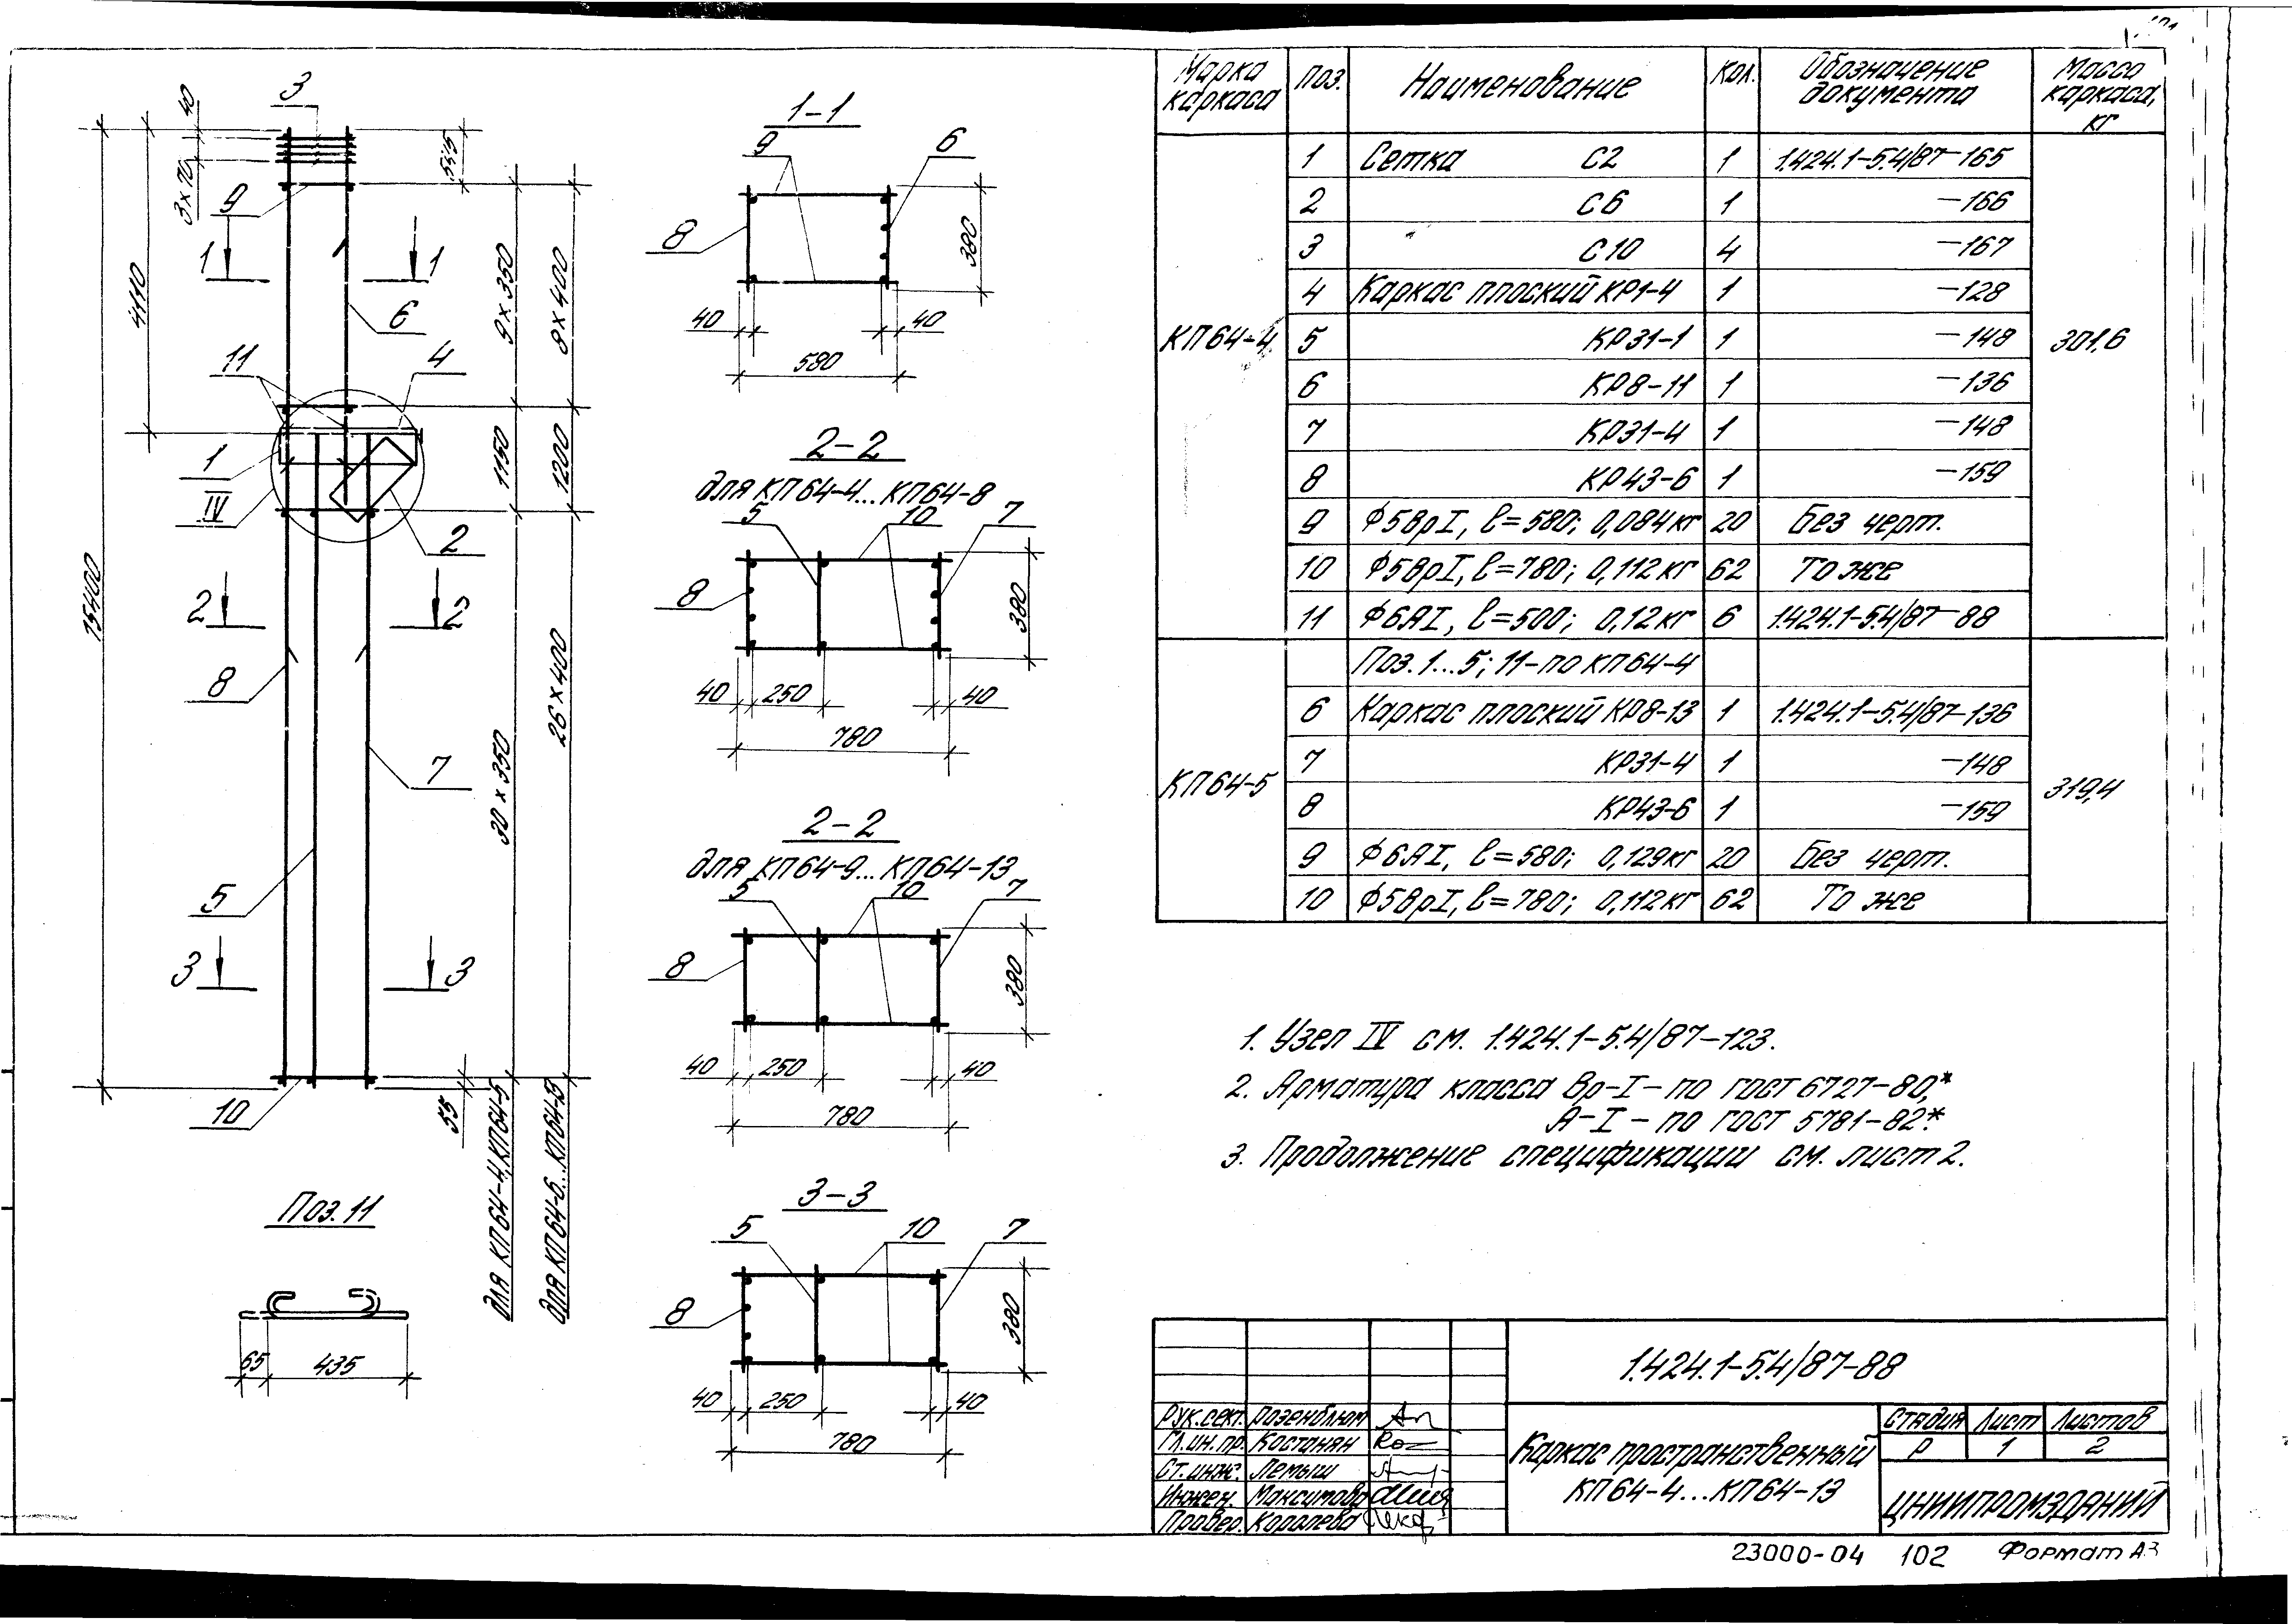 3
40
3×70
545
9
1 1
4110
6
9×350
8×400
11
4
1
IV
1150
1200
2
15400
2 2
8
26×400
7
30×350
5
3 3
10
55
для КП64-4, КП64-5
для КП64-6...КП64-13
Поз. 11
65 435
1-1
9 6
8
380
40 40
580
2-2
для КП64-4...КП64-8
5 10 7
8
380
40 250 40
780
2-2
для КП64-9...КП64-13
5 10 7
8
380
40 250 40
780
3-3
5 10 7
8
380
40 250 40
780
Марка каркаса Поз. Наименование Кол. Обозначение документа Масса каркаса, кг
КП64-4 301,6
1 Сетка С2 1 1.424.1-5.4/87-165
2 С6 1 -166
3 С10 4 -167
4 Каркас плоский КР1-4 1 -128
5 КР31-1 1 -148
6 КР8-11 1 -136
7 КР31-4 1 -148
8 КР43-6 1 -159
9 Ф5ВрI, l=580; 0,084кг 20 Без черт.
10 Ф5ВрI, l=780; 0,112кг 62 То же
11 Ф6АI, l=500; 0,12кг 6 1.424.1-5.4/87-88
КП64-5 319,4
Поз. 1...5; 11-по КП64-4
6 Каркас плоский КР8-13 1 1.424.1-5.4/87-136
7 КР31-4 1 -148
8 КР43-6 1 -159
9 Ф6АI, l=580; 0,129кг 20 Без черт.
10 Ф5ВрI, l=780; 0,112кг 62 То же
1. Узел IV см. 1.424.1-5.4/87-123.
2. Арматура класса Вр-I - по ГОСТ 6727-80,*
А-I - по ГОСТ 5781-82*.
3. Продолжение спецификации см. лист 2.
1.424.1-5.4/87-88
Рук.сект. Розенблюм
Гл.ин.пр. Костанян
Ст.инж. Лемыш
Инжен. Максимова
Провер. Королева
Каркас пространственный
КП64-4...КП64-13
Стадия Лист Листов
Р 1 2
ЦНИИПРОМЗДАНИЙ
23000-04 102 Формат А3